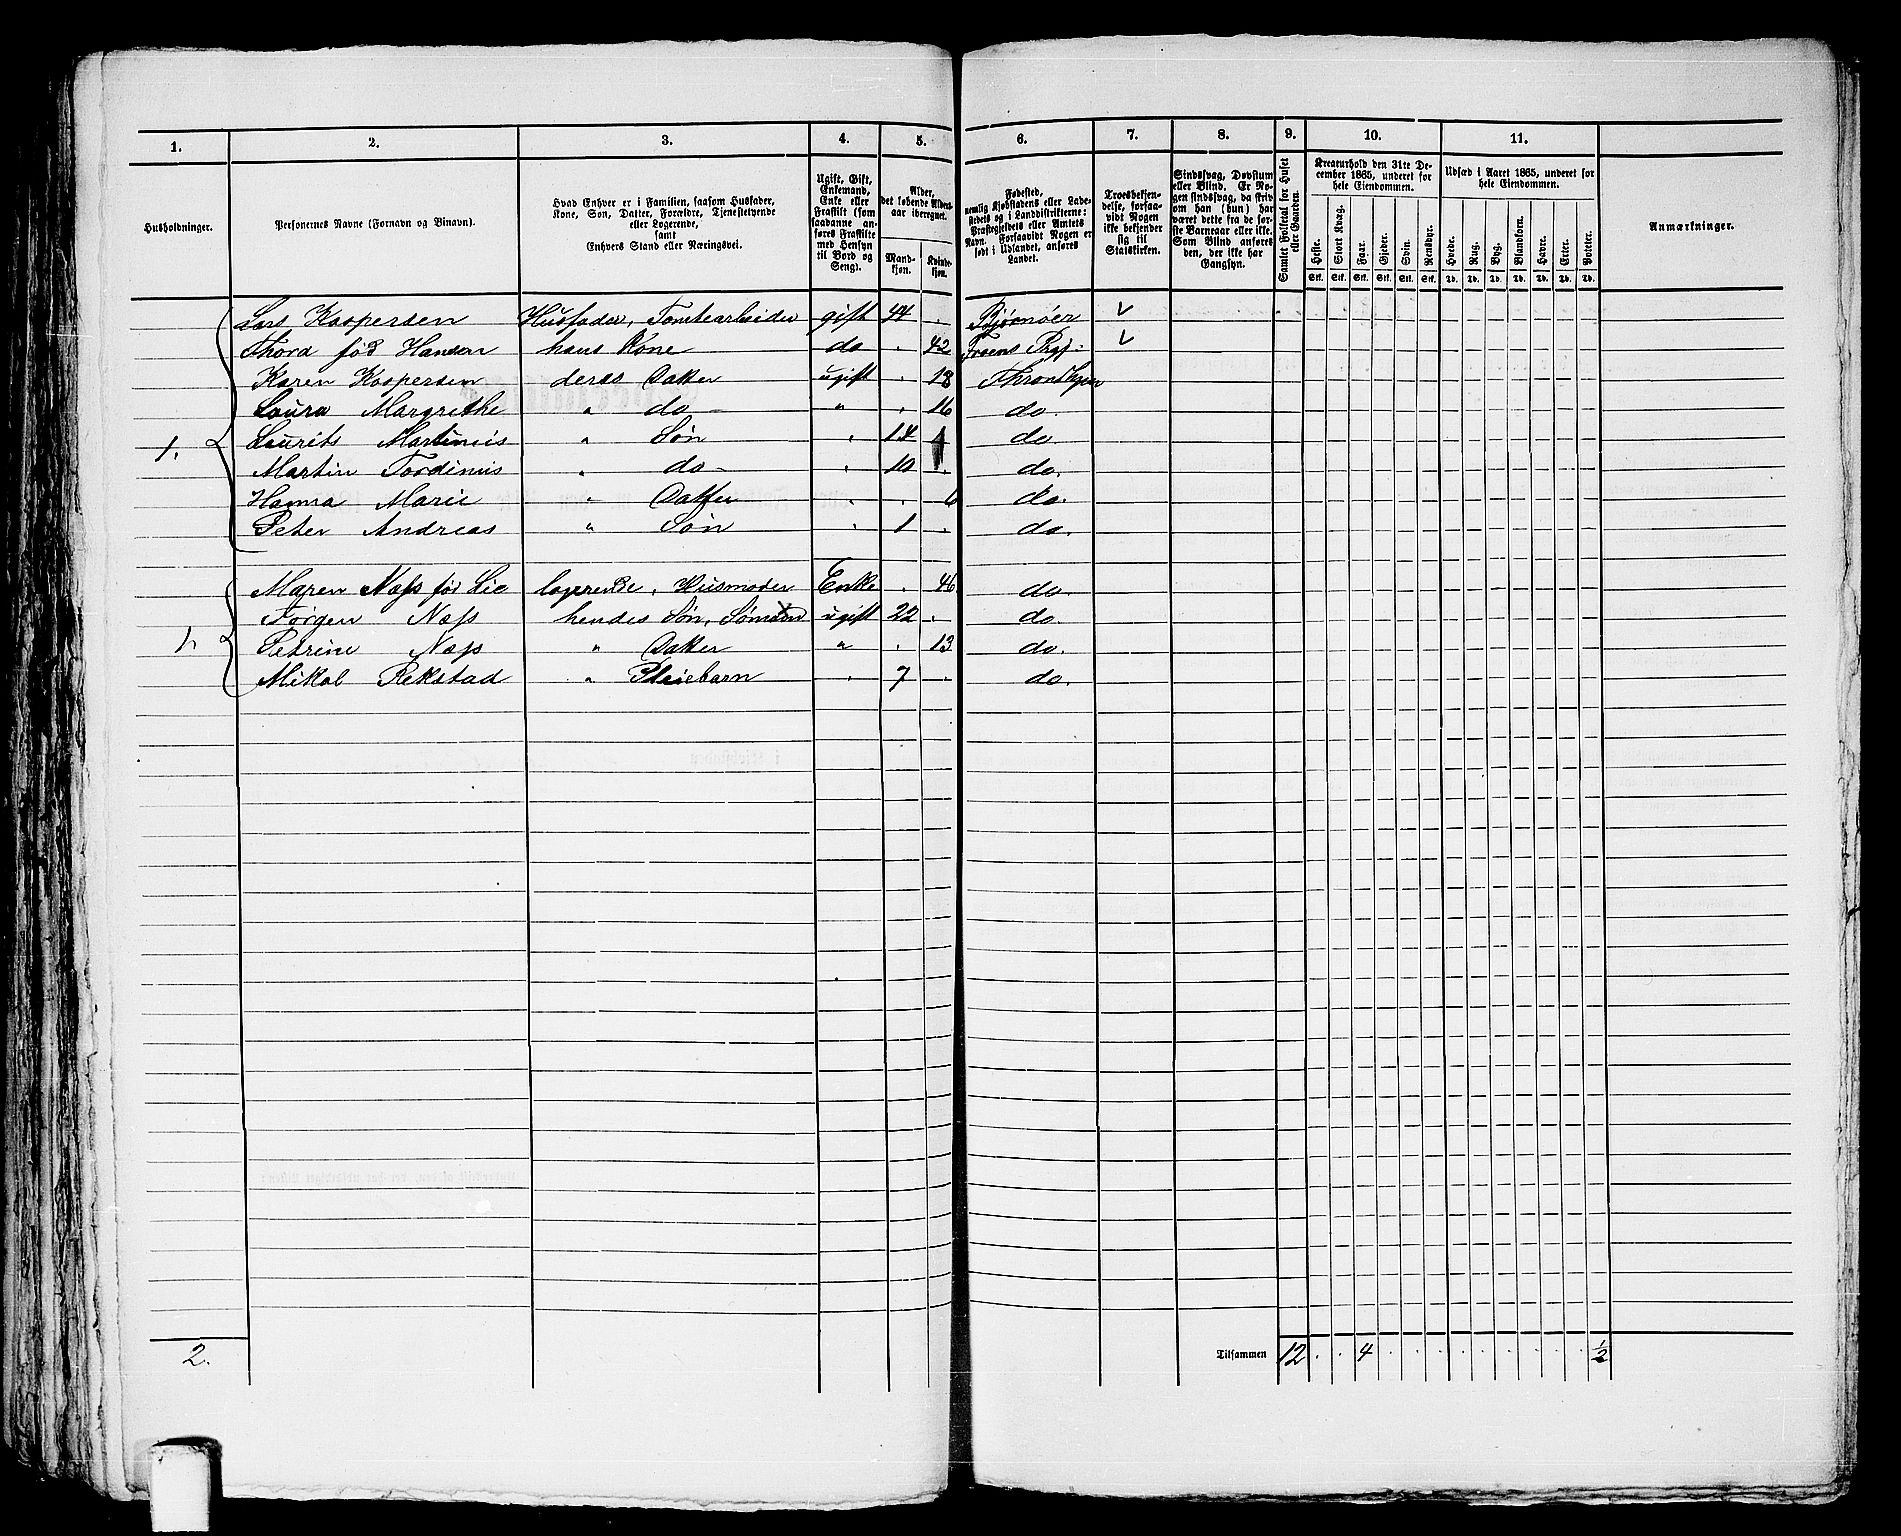 1. 2. 3. 4. 5. 6. 7. 8. 9. 10. 11.
Husholdninger.
Personernes Navne (Fornavn og Binavn).
Hvad Enhver er i Familien, saasom Husfader,
Kone, Søn, Datter, Forældre, Tjenestetyende
eller Logerende,
samt
Enhvers Stand eller Næringsvei.
Ugift, Gift,
Enkemand,
Enke eller
Fraskilt (som
saadanne an-
føres Fraskilte
med Hensyn
til Bord og
Seng).
Alder,
det løbende Alders-
aar iberegnet.
Mand-
kjøn.
Kvinde-
kjøn.
Fødested,
nemlig Kjøbstadens eller Lade-
stedets og i Landdistrikterne:
Præstegjeldets eller Amtets
Navn. Forsaavidt Nogen er
født i Udlandet, anføres
Landet.
Troesbekjen-
delse, forsaa-
vidt Nogen
ikke bekjender
sig til
Statskirken.
Sindssvag, Døvstum
eller Blind. Er No-
gen sindssvag, da skriv
om han (hun) har
været dette fra de før-
ste Barneaar eller ikke.
Som Blind anføres
den, der ikke har
Gangsyn.
Samlet Folketal for Huset
eller Gaarden.
Kreaturhold den 31te De-
cember 1865, underet for
hele Eiendommen.
Heste. Stort Kvæg. Faar. Gjeder. Svin. Rensdyr.
Stk. Stk. Stk. Stk. Stk. Stk.
Udsæd i Aaret 1865, underet for
hele Eiendommen.
Hvede. Rug. Byg. Blandkorn. Havre. Erter. Poteter.
Td. Td. Td. Td. Td. Td. Td.
Anmærkninger.
Lars Kaspersen Husfader, Tomtearbeider gift 44 . Bjørnøer ✓
Thora fød Hansen hans Kone do . 42 Froens Prgj. ✓
Karen Kaspersen deres Datter ugift . 18 Throndhjem
Laura Margrethe " do - " . 16 do.
1. Laurits Martinius " Søn . 14 do
Martin Tordinius " do - . 10 . do.
Hanna Marie " Datter . . 6 do.
Peter Andreas " Søn . 1 . do.
Maren Næss før Lie logerende, Husmoder Enke . 46 do.
Jørgen Næss hendes Søn, Sømand ugift 22 . do.
1. Petrine Næss " Datter " . 13 do.
Mikal Rekstad " Pleiebarn . 7 . do.
2.
Tilsammen 12 . . 4 . . . . . . . . . ½